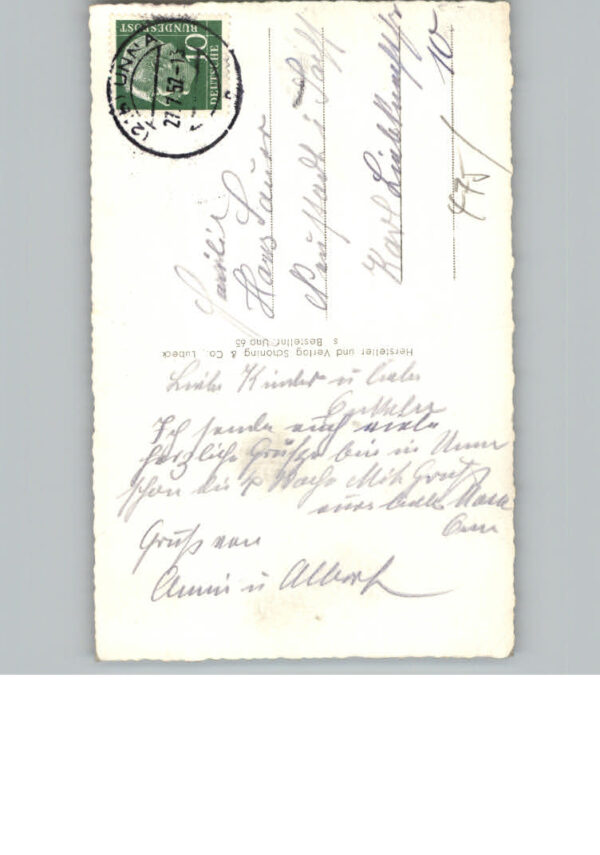 DEUTSCHE
BUNDESPOST
10
(21b) UNNA
27.7.57
Familie
Hans Sauer
Neustadt i Holst
Karl Liebknechtstr
10
475/
Hersteller und Verlag Schöning & Co., Lübeck
s Bestellnr. Una 65
Liebe Kinder u liebe
Ich sende euch viele
herzliche Grüße bin in Unna
schon die 4 Woche Mit Gruß
eure liebe Mama
Oma
Gruß von
Anni u Albert